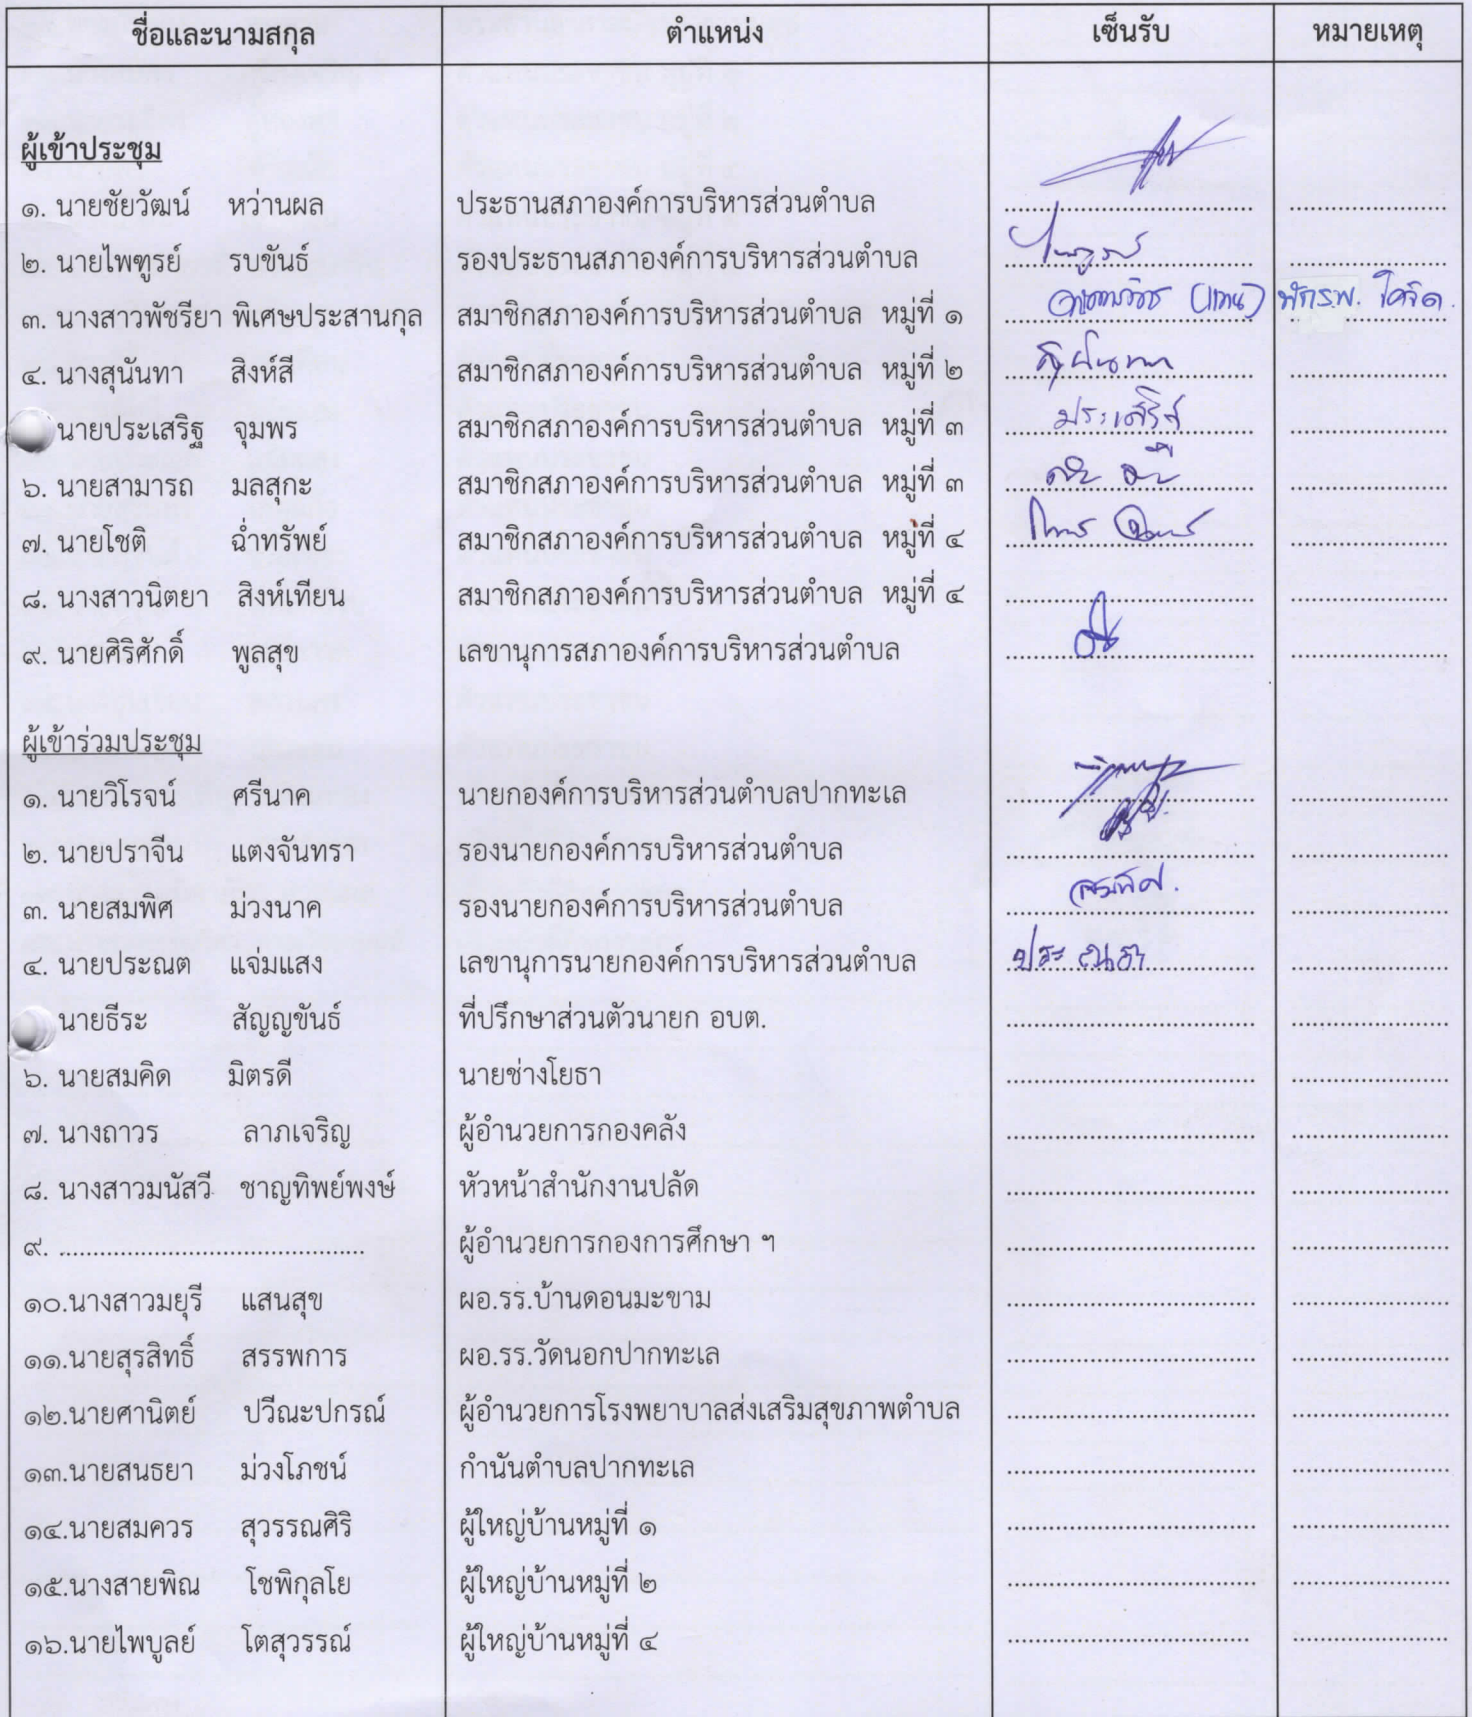 ชื่อและนามสกุล ตำแหน่ง เซ็นรับ หมายเหตุ
ผู้เข้าประชุม
๑. นายชัยวัฒน์ หว่านผล ประธานสภาองค์การบริหารส่วนตำบล ........................................ ......................
๒. นายไพฑูรย์ รบขันธ์ รองประธานสภาองค์การบริหารส่วนตำบล ไพฑูรย์ ......................
๓. นางสาวพัชรียา พิเศษประสานกุล สมาชิกสภาองค์การบริหารส่วนตำบล หมู่ที่ ๑ (แทน)
๔. นางสุนันทา สิงห์สี สมาชิกสภาองค์การบริหารส่วนตำบล หมู่ที่ ๒ สุนันทา ......................
นายประเสริฐ จุมพร สมาชิกสภาองค์การบริหารส่วนตำบล หมู่ที่ ๓ ประเสริฐ ......................
๖. นายสามารถ มลสุกะ สมาชิกสภาองค์การบริหารส่วนตำบล หมู่ที่ ๓ ........................................ ......................
๗. นายโชติ ฉ่ำทรัพย์ สมาชิกสภาองค์การบริหารส่วนตำบล หมู่ที่ ๔ ........................................ ......................
๘. นางสาวนิตยา สิงห์เทียน สมาชิกสภาองค์การบริหารส่วนตำบล หมู่ที่ ๔ ........................................ ......................
๙. นายศิริศักดิ์ พูลสุข เลขานุการสภาองค์การบริหารส่วนตำบล ........................................ ......................
ผู้เข้าร่วมประชุม
๑. นายวิโรจน์ ศรีนาค นายกองค์การบริหารส่วนตำบลปากทะเล ........................................ ......................
๒. นายปราจีน แตงจันทรา รองนายกองค์การบริหารส่วนตำบล ........................................ ......................
๓. นายสมพิศ ม่วงนาค รองนายกองค์การบริหารส่วนตำบล สมพิศ. ......................
๔. นายประณต แจ่มแสง เลขานุการนายกองค์การบริหารส่วนตำบล ........................................ ......................
นายธีระ สัญญขันธ์ ที่ปรึกษาส่วนตัวนายก อบต. ........................................ ......................
๖. นายสมคิด มิตรดี นายช่างโยธา ........................................ ......................
๗. นางถาวร ลาภเจริญ ผู้อำนวยการกองคลัง ........................................ ......................
๘. นางสาวมนัสวี ชาญทิพย์พงษ์ หัวหน้าสำนักงานปลัด ........................................ ......................
๙. ........................................ ผู้อำนวยการกองการศึกษา ฯ ........................................ ......................
๑๐.นางสาวมยุรี แสนสุข ผอ.รร.บ้านดอนมะขาม ........................................ ......................
๑๑.นายสุรสิทธิ์ สรรพการ ผอ.รร.วัดนอกปากทะเล ........................................ ......................
๑๒.นายศานิตย์ ปวีณะปกรณ์ ผู้อำนวยการโรงพยาบาลส่งเสริมสุขภาพตำบล ........................................ ......................
๑๓.นายสนธยา ม่วงโภชน์ กำนันตำบลปากทะเล ........................................ ......................
๑๔.นายสมควร สุวรรณศิริ ผู้ใหญ่บ้านหมู่ที่ ๑ ........................................ ......................
๑๕.นางสายพิณ โชพิกุลโย ผู้ใหญ่บ้านหมู่ที่ ๒ ........................................ ......................
๑๖.นายไพบูลย์ โตสุวรรณ์ ผู้ใหญ่บ้านหมู่ที่ ๔ ........................................ ......................